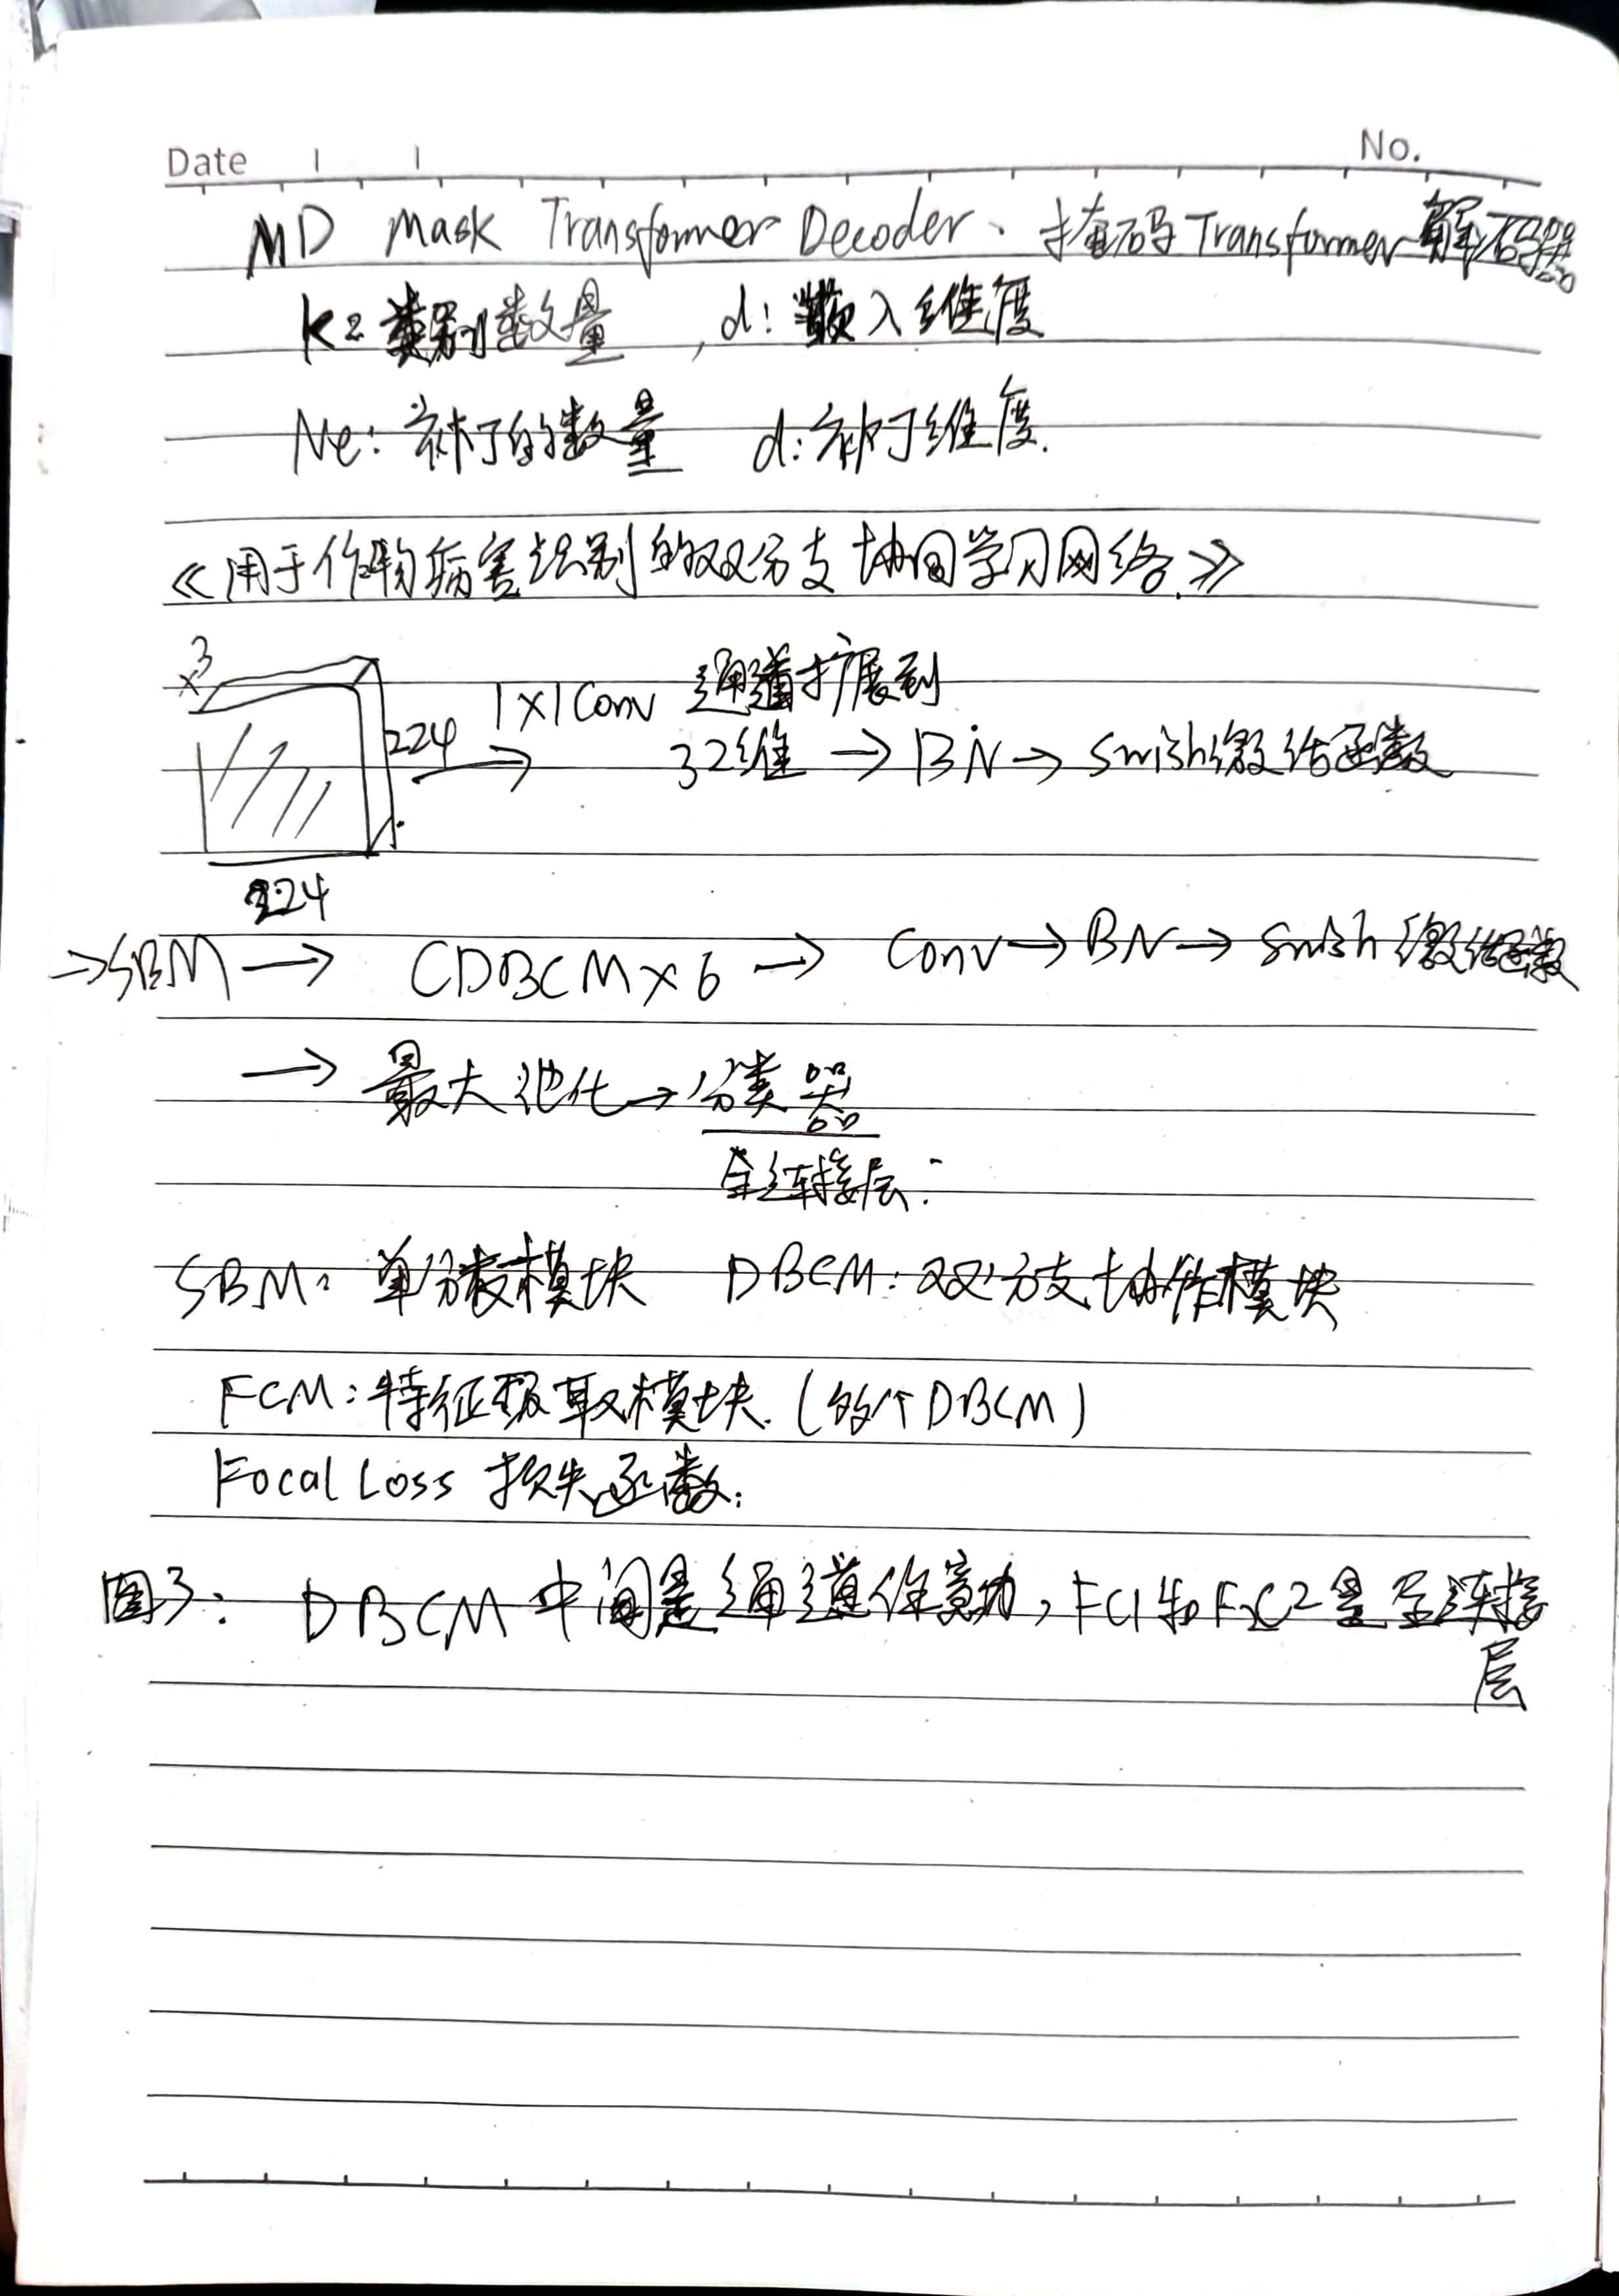 Date
No.
MD Mask Transformer Decoder、掩码Transformer解码器
k: 类别数量 , d: 嵌入维度
Ne: 补丁的数量 d: 补丁维度.
《用于作物病害识别的双分支协同学习网络》
×3
1×1Conv 通道扩展到
224
32维 → BN → Swish激活函数
224
→SBM → CDBCM×6 → Conv → BN → Swish激活函数
→ 最大池化 → 分类器
全连接层:
SBM: 单分支模块 DBCM: 双分支协作模块
FCM: 特征提取模块. (的个DBCM)
Focal Loss 损失函数:
图3: DBCM中间是通道注意力, FC1和FC2是全连接
层